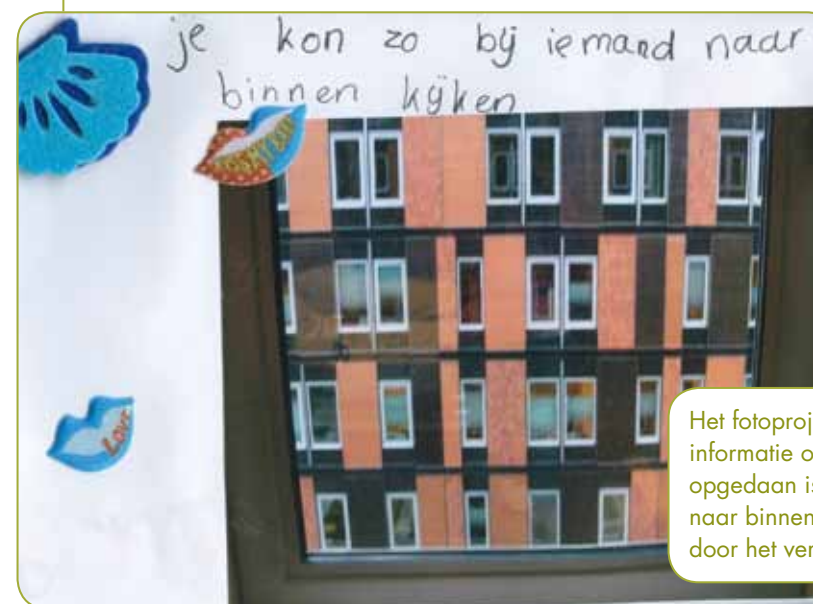 je kon zo bij iemand naar
binnen kijken
LOVE
Het fotoproj
informatie o
opgedaan is
naar binnen
door het ver